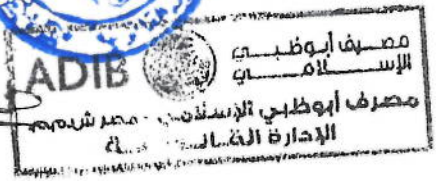 ADIB
مصرف أبوظبي
الإسلامي
مصرف أبوظبي الإسلامي - مصر ش.م.م
الإدارة المالية